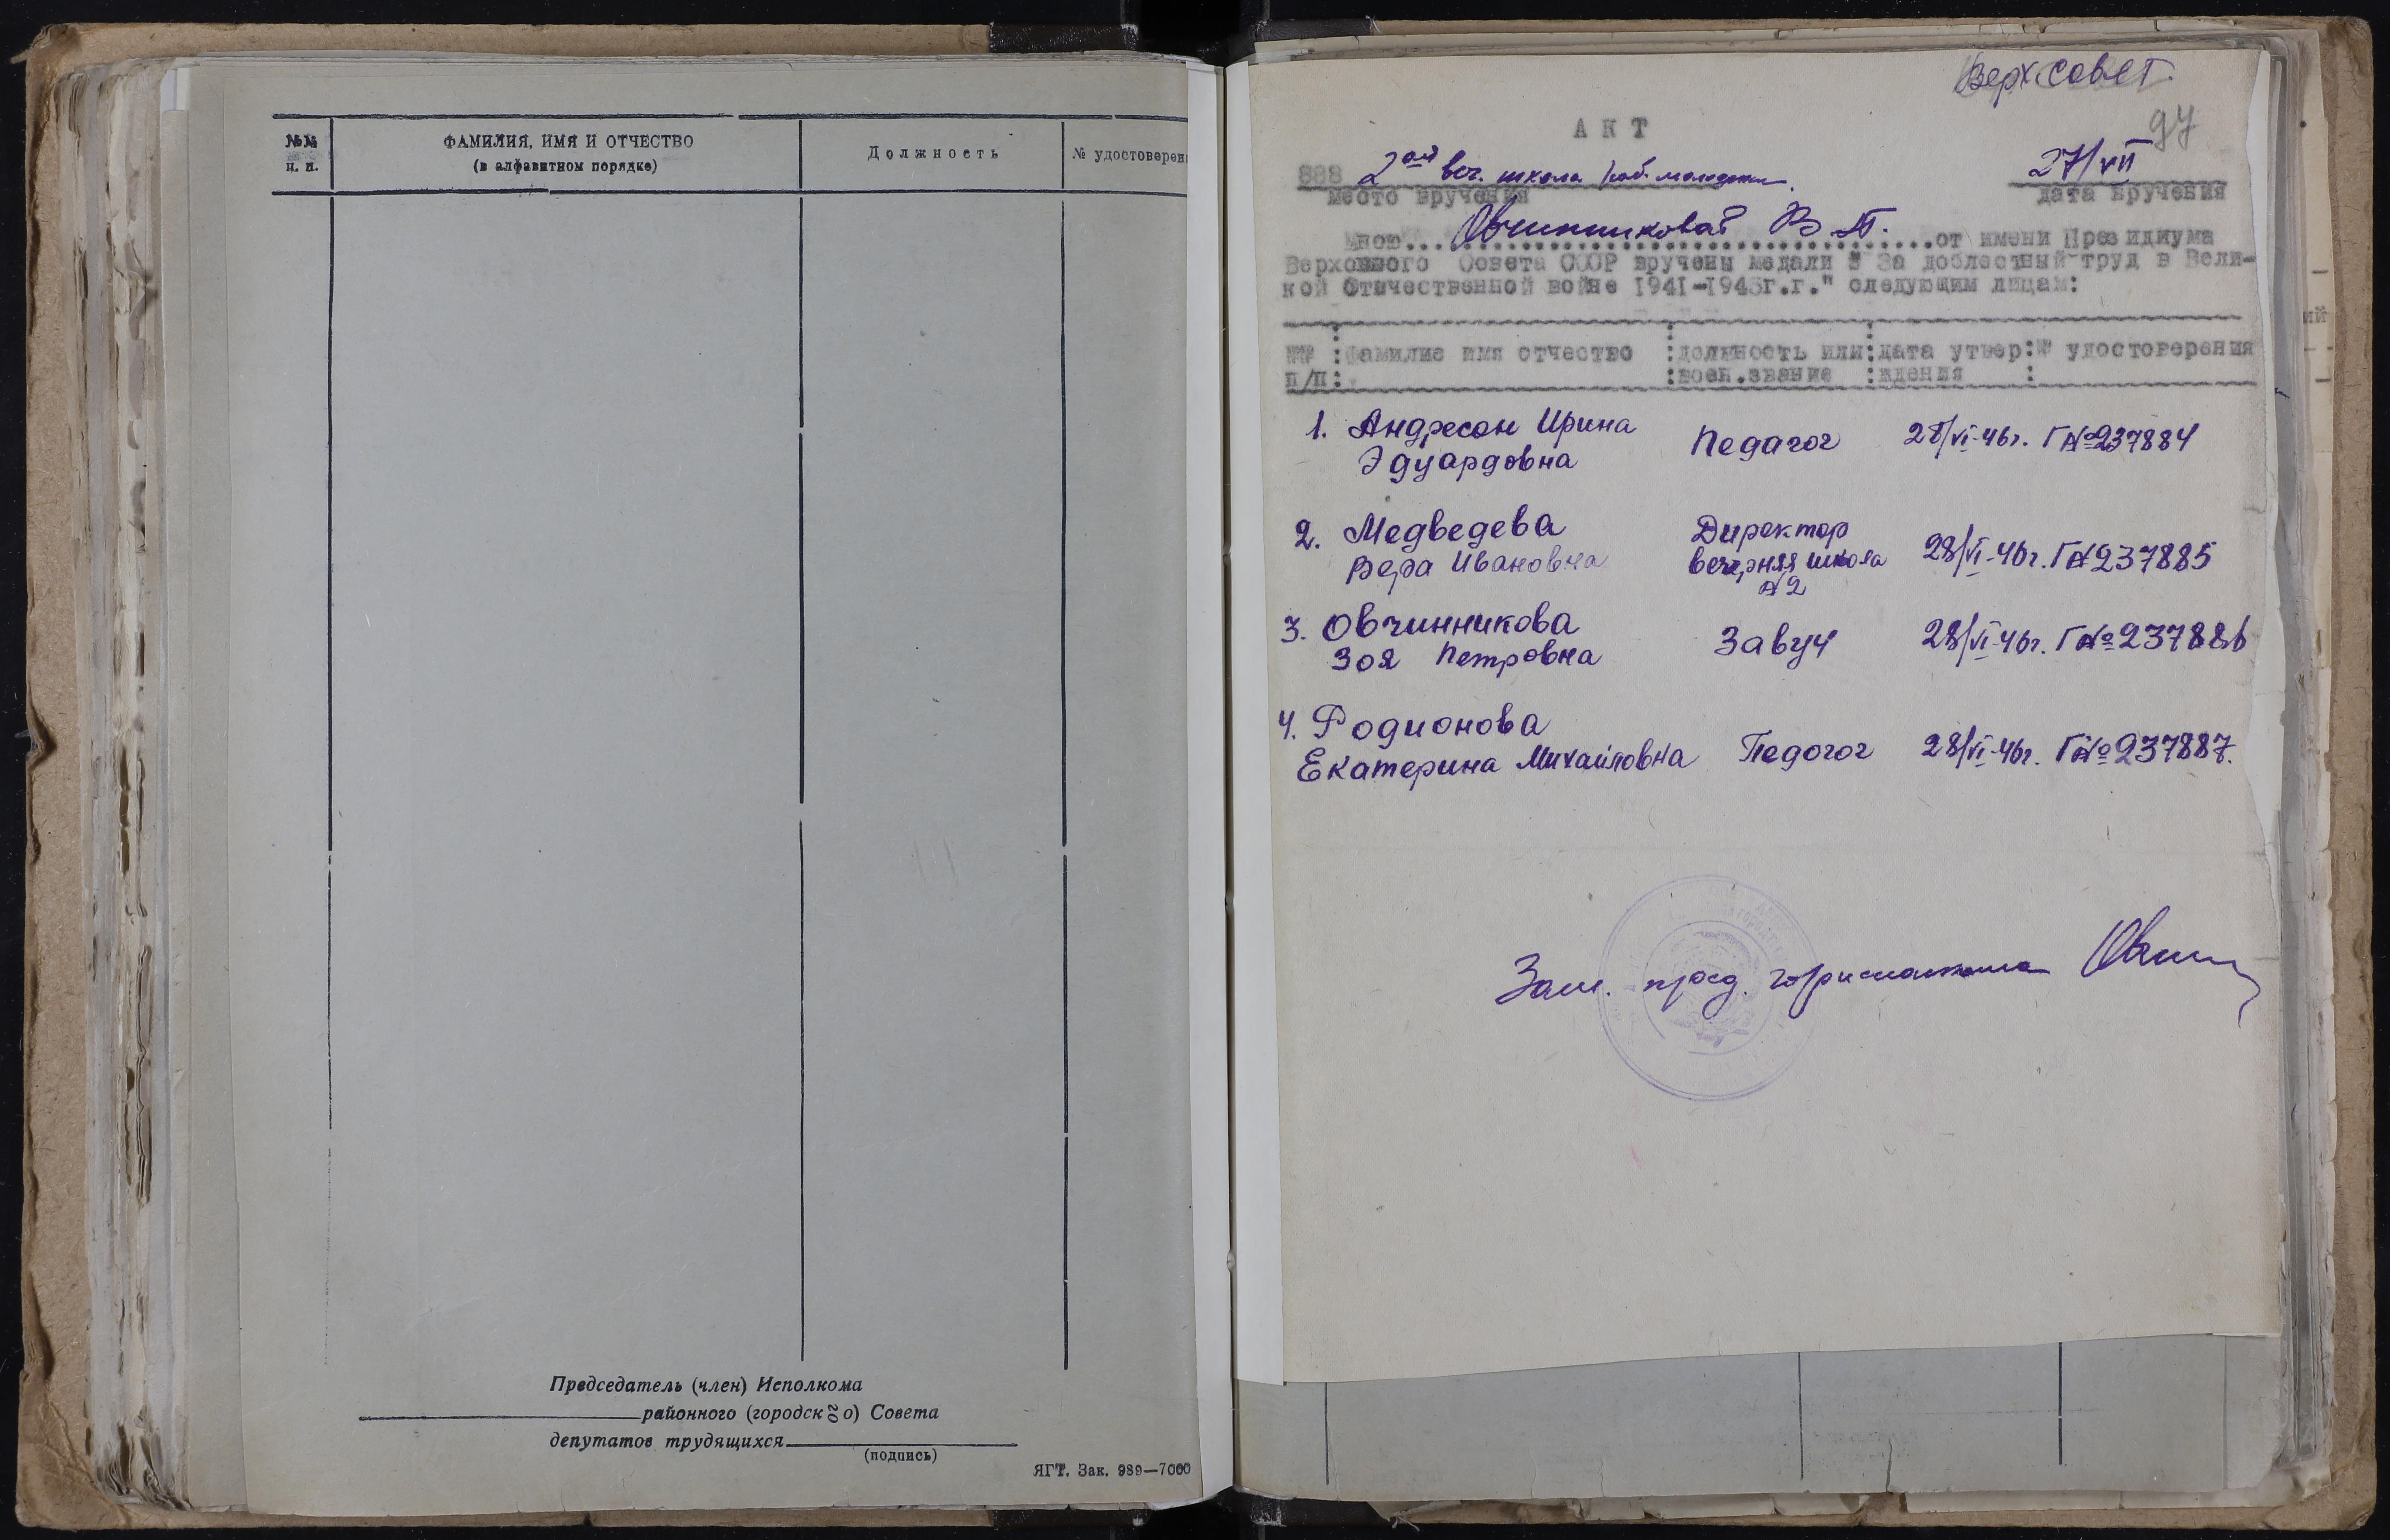 №№ п. п.
ФАМИЛИЯ, ИМЯ И ОТЧЕСТВО
(в алфавитном порядке)
Должность
№ удостоверен
Председатель (член) Исполкома
районного (городского) Совета
депутатов трудящихся
(подпись)
ЯГТ. Зак. 989—7000
Верх.Совет.
97
АКТ
2ая веч. школа раб. молодежи.
27/VII
место вручения
дата вручения
Мною...Овчинниковой В. П....от имени Президиума
Верховного Совета СССР вручены медали " За доблестный труд в Вели-
кой Отечественной войне 1941-1945г.г." следующим лицам:
№№ :Фамилие имя отчество :должность или:дата утвер:№ удостоверения
п/п: :воен.звание :ждения :
1. Андресон Ирина
Эдуардовна
Педагог
28/VI-46г. ГА№237884
2. Медведева
Вера Ивановна
Директор
вечерняя школа
№2
28/VI-46г. ГА237885
3. Овчинникова
Зоя Петровна
Завуч
28/VI-46г. ГА№237886
4. Родионова
Екатерина Михайловна
Педогог
28/VI-46г. ГА№237887.
Зам. пред. горисполкома